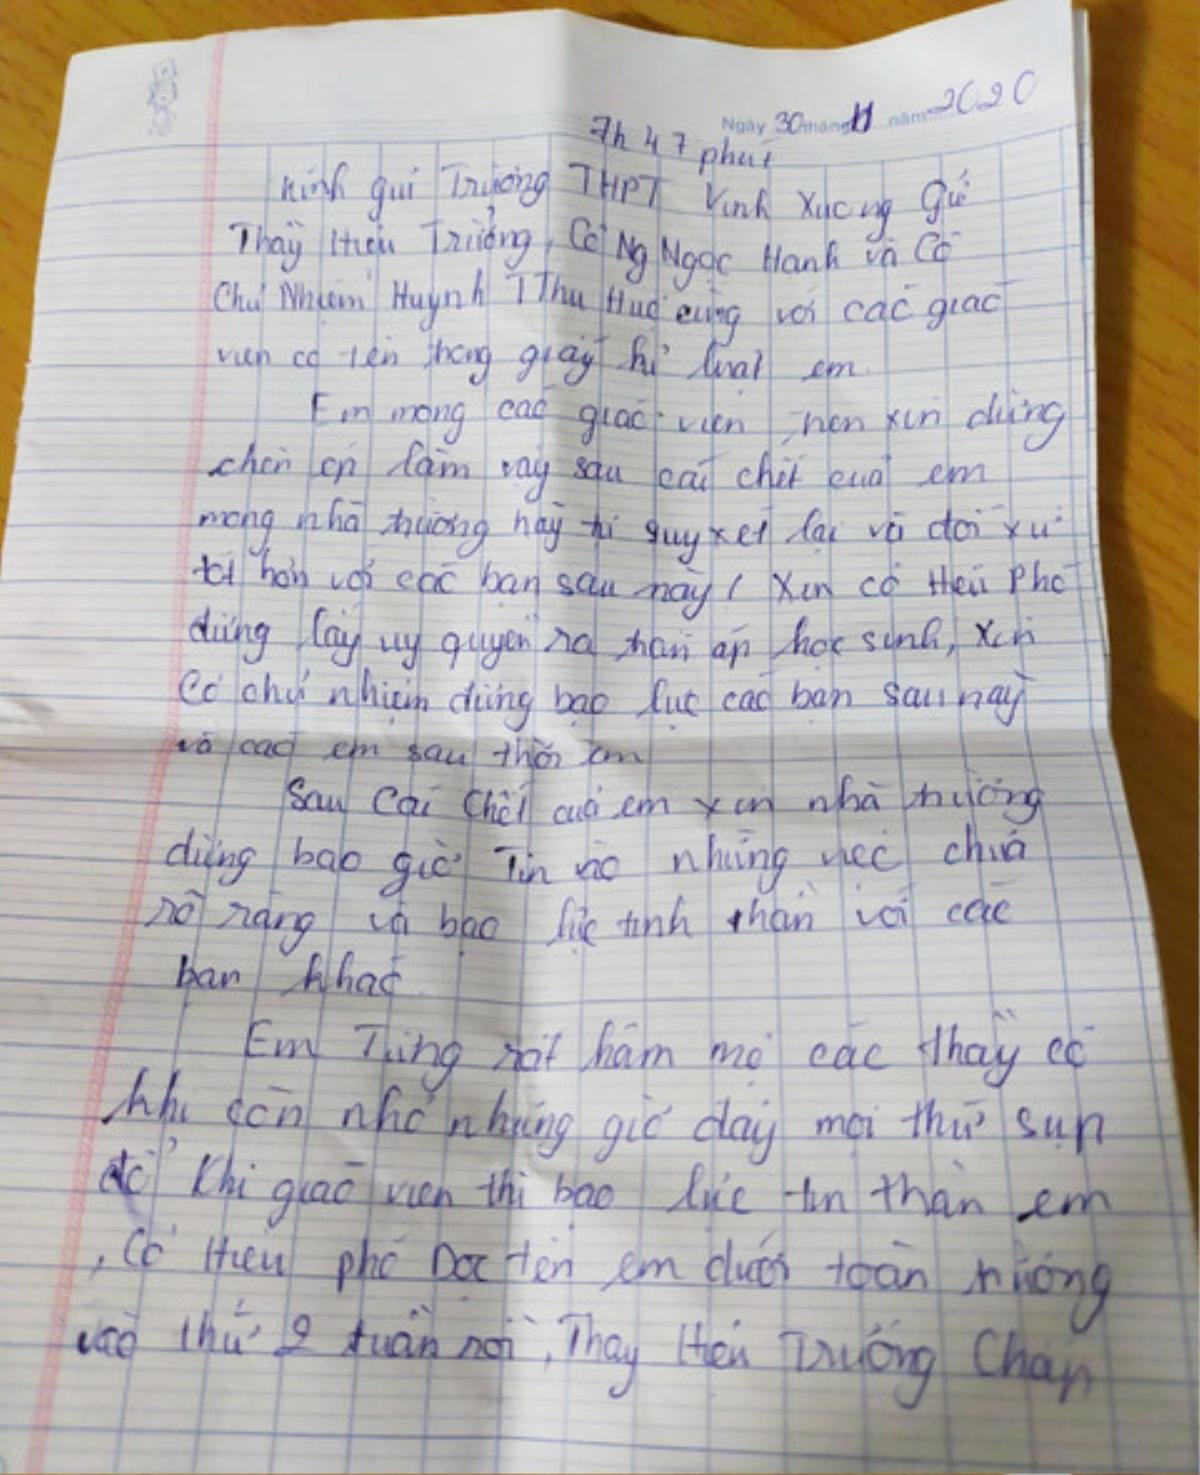 Ngày 30 tháng 11 năm 2020
7h 47 phút
Kính gửi Trường THPT Vĩnh Xương Gửi
Thầy Hiệu Trưởng, Cô Ng Ngọc Hạnh và Cô
Chủ Nhiệm Huỳnh T Thu Huệ cùng với các giáo
viên có tên trong giấy kỉ luật em.
Em mong các giáo viên, nên xin đừng
chèn ép lắm vậy sau cái chết của em
mong nhà trường hãy tự quyết lại và đối xử
tốt hơn với các bạn sau này! Xin cô Hiệu Phó
đừng lấy uy quyền ra trấn áp học sinh, xin
cô chủ nhiệm đừng bạo lực các bạn sau này
và các em sau thời em
Sau cái chết của em xin nhà trường
đừng bao giờ Tin vào những việc chưa
rõ ràng và bạo lực tinh thần với các
bạn khác.
Em Từng rất hâm mộ các thầy cô
khi còn nhỏ nhưng giờ đây mọi thứ sụp
đổ khi giáo viên thì bạo lực tin thần em
, Cô Hiệu phó Đọc tên em dưới toàn trường
vào thứ 2 tuần rồi, Thầy Hiệu Trưởng Chấp